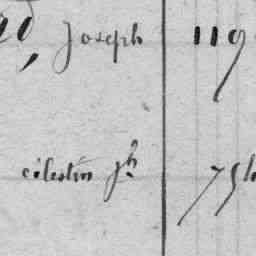 Joseph 119
célestin jh 75